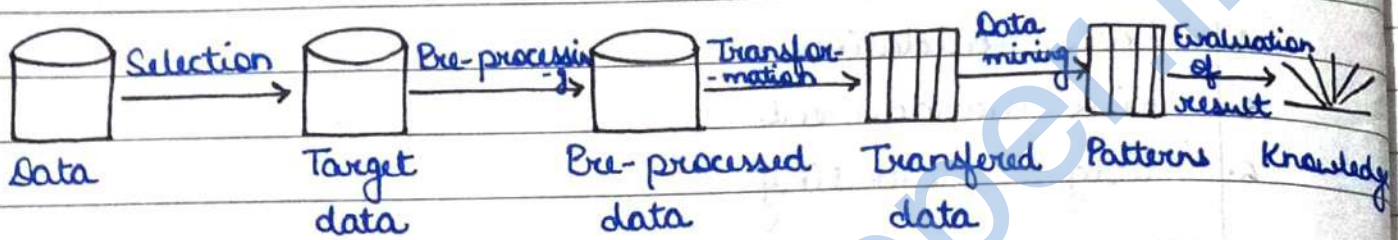 Selection
Pre-processin
-g
Transfor-
-mation
Data
mining
Evaluation
of
result
Data
Target
data
Pre-processed
data
Transfered
data
Patterns
Knowledg